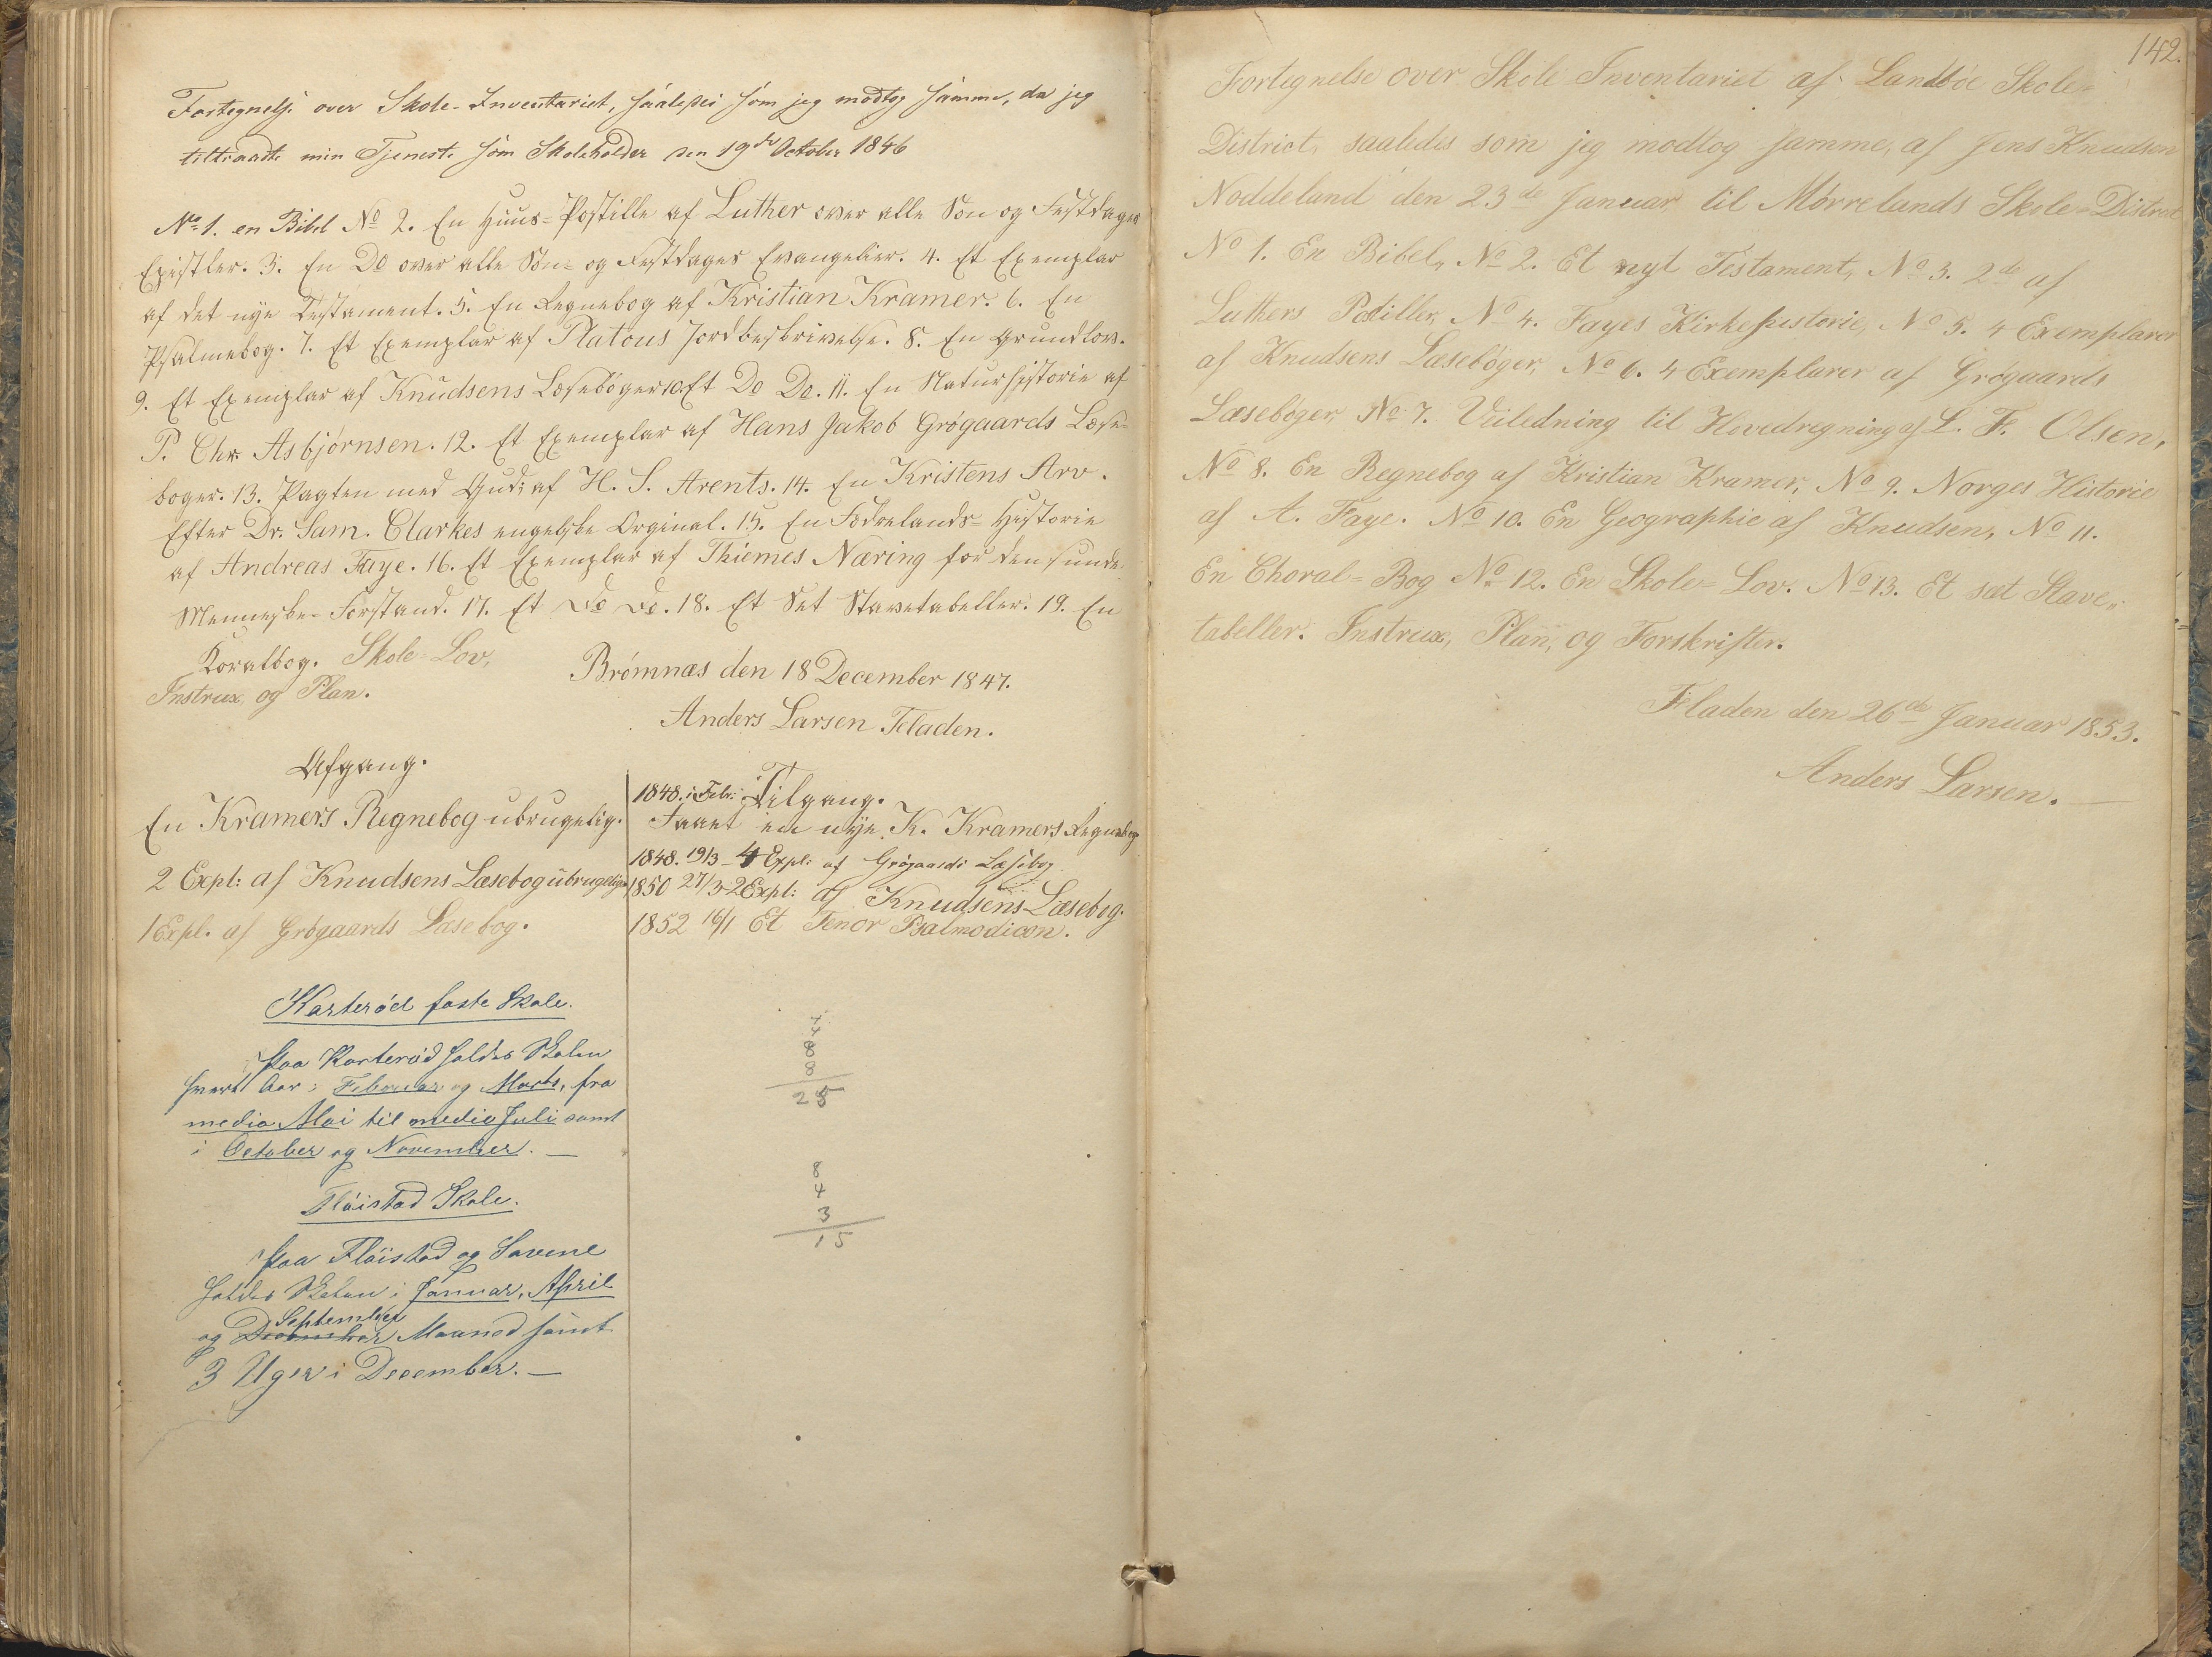 Fortegnelse over Skole-Inventariet, saaledes som jeg modtog samme, da jeg
tiltraadte min Tjeneste som Skoleholder den 19de October 1846
No 1. en Bibel No 2. En Huus-Postille af Luther over alle Søn og Festdages
Epistler. 3. En Do over alle Søn- og Festdages Evangelier. 4. Et Exemplar
af det nye Testament. 5. En Regnebog af Kristian Kramer. 6. En
Psalmebog. 7. Et Exemplar af Platous Jordbeskrivelse. 8. En Grundlov.
9. Et Exemplar af Knudsens Læsebøger 10. Et Do Do. 11. En Naturhistorie af
P. Chr. Asbjørnsen. 12. Et Exemplar af Hans Jakob Grøgaards Læse-
bøger. 13. Pagten med Gud; af H. S. Arents. 14. En Kristens Arv.
Efter Dr. Sam. Clarkes engelske Orginal. 15. En Fædrelands-Historie
af Andreas Faye. 16. Et Exemplar af Thiemes Næring for den sunde
Menneske-Forstand. 17. Et Do Do. 18. Et Set Stavetabeller. 19. En
Koralbog. Skole-Lov,
Instrux, og Plan.
Brømnæs den 18 December 1847.
Anders Larsen Fladen.
Afgang.
En Kramers Regnebog ubrugelig.
2 Expl: af Knudsens Læsebog ubrugelige
1 Expl. af Grøgaards Læsebog.
1848. i Febr: Tilgang.
Faaet en nye K. Kramers Regnebog
1848. 19/3 - 4 Expl: af Grøgaards Læsebog
1850 27/3 - 2 Expl: af Knudsens Læsebog.
1852 16/1 Et Tenor Psalmodicon.
Karterød faste Skole.
Paa Karterød holdes Skolen
hvert Aar i Februar og Marts, fra
medio Mai til medio Juli samt
i October og November. —
Fløistad Skole.
Paa Fløistad og Savene
holdes Skolen i Januar, April
September
og December Maaned samt
3 Uger i December. —
4
4
8
8
25
8
4
3
15
142.
Fortegnelse over Skole Inventariet af Landbøe Skole-
District, saaledes som jeg modtog samme, af Jens Knudsen
Noddeland den 23de Januar til Mørrelands Skole-District
No 1. En Bibel, No 2. Et nyt Testament, No 3. 2de af
Luthers Postiller, No 4. Fayes Kirkehistorie, No 5. 4 Exemplarer
af Knudsens Læsebøger, No 6. 4 Exemplarer af Grøgaards
Læsebøger, No 7. Veiledning til Hovedregning af L. F. Olsen,
No 8. En Regnebog af Kristian Kramer, No 9. Norges Historie
af A. Faye. No 10. En Geographie af Knudsen, No 11.
En Choral-Bog No 12. En Skole-Lov. No 13. Et sæt Stave-
tabeller. Instrux, Plan, og Forskrifter.
Fladen den 26de Januar 1853.
Anders Larsen. —